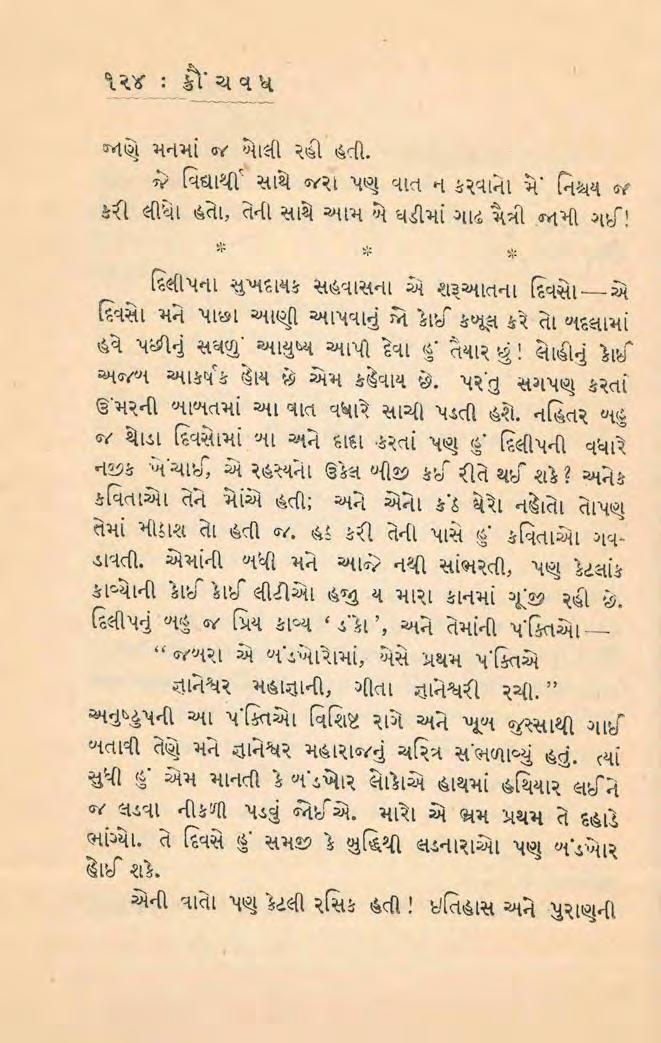 ૧૨૪ : ક્રૌંચવધ
જાણે મનમાં જ બોલી રહી હતી.
જે વિદ્યાર્થી સાથે જરા પણ વાત ન કરવાનો મેં નિશ્ચય જ
કરી લીધો હતો, તેની સાથે આમ બે ઘડીમાં ગાઢ મૈત્રી જામી ગઈ!
* * *
દિલીપના સુખદાયક સહવાસના એ શરૂઆતના દિવસો—એ
દિવસો મને પાછા આણી આપવાનું જો કોઈ કબૂલ કરે તો બદલામાં
હવે પછીનું સઘળું આયુષ્ય આપી દેવા હું તૈયાર છું! લોહીનું કોઈ
અજબ આકર્ષક હોય છે એમ કહેવાય છે. પરંતુ સગપણ કરતાં
ઉંમરની બાબતમાં આ વાત વધારે સાચી પડતી હશે. નહિતર બહુ
જ થોડા દિવસોમાં બા અને દાદા કરતાં પણ હું દિલીપની વધારે
નજીક ખેંચાઈ, એ રહસ્યનો ઉકેલ બીજી કઈ રીતે થઈ શકે? અનેક
કવિતાઓ તેને મોંએ હતી; અને એનો કંઠ ઘેરો નહોતો તોપણ
તેમાં મીઠાશ તો હતી જ. હઠ કરી તેની પાસે હું કવિતાઓ ગવ-
ડાવતી. એમાંની બધી મને આજે નથી સાંભરતી, પણ કેટલાંક
કાવ્યોની કોઈ કોઈ લીટીઓ હજી ય મારા કાનમાં ગૂંજી રહી છે.
દિલીપનું બહુ જ પ્રિય કાવ્ય ‘ ડંકો’, અને તેમાંની પંક્તિઓ—
“ જબરા એ બંડખોરોમાં, બેસે પ્રથમ પંક્તિએ
જ્ઞાનેશ્વર મહાજ્ઞાની, ગીતા જ્ઞાનેશ્વરી રચી. ”
અનુષ્ટુપની આ પંક્તિઓ વિશિષ્ટ રાગે અને ખૂબ જુસ્સાથી ગાઈ
બતાવી તેણે મને જ્ઞાનેશ્વર મહારાજનું ચરિત્ર સંભળાવ્યું હતું. ત્યાં
સુધી હું એમ માનતી કે બંડખોર લોકોએ હાથમાં હથિયાર લઈને
જ લડવા નીકળી પડવું જોઈએ. મારો એ ભ્રમ પ્રથમ તે દહાડે
ભાંગ્યો. તે દિવસે હું સમજી કે બુદ્ધિથી લડનારાઓ પણ બંડખોર
હોઈ શકે.
એની વાતો પણ કેટલી રસિક હતી! ઇતિહાસ અને પુરાણની